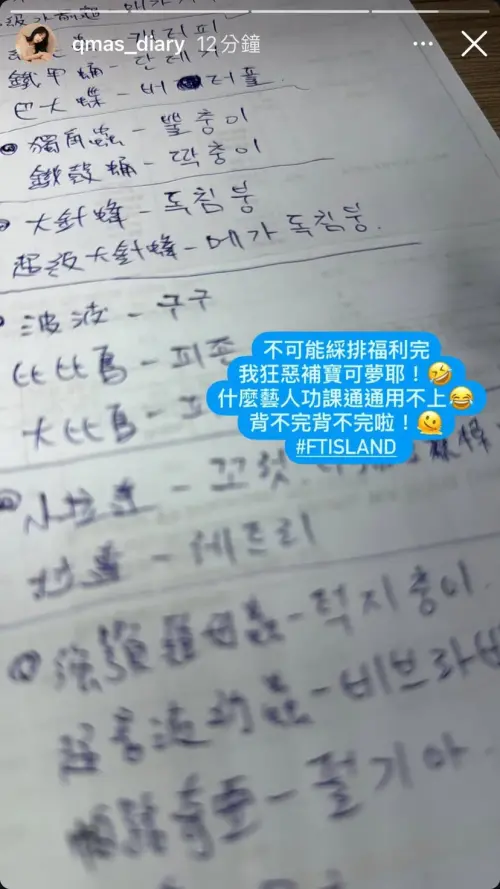 qmas_diary 12分鐘
캐터피
鐵甲蛹 - 단데기
巴大蝶 - 버터플
獨角蟲 - 뿔충이
鐵殼蛹 - 딱충이
大針蜂 - 독침붕
超級大針蜂 - 메가 독침붕.
波波 - 구구
比比鳥 - 피죤
大比鳥 -
不可能綵排福利完
我狂惡補寶可夢耶！🤣
什麼藝人功課通通用不上😂
背不完背不完啦！🫠
#FTISLAND
小拉達 - 꼬렛
拉達 - 레트리
強顎雞母蟲 - 턱지충이
超音波幼蟲 - 비브라바
帕路奇亞 - 펄기아